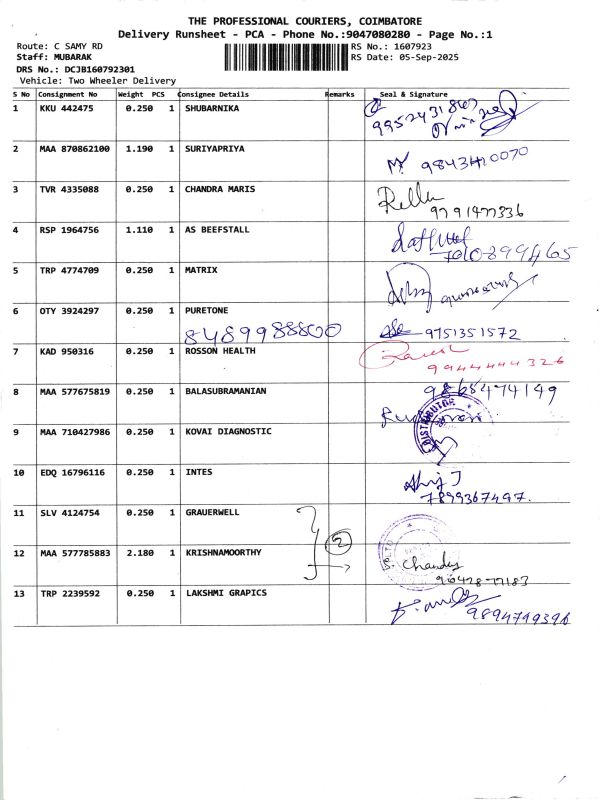 THE PROFESSIONAL COURIERS, COIMBATORE
Delivery Runsheet - PCA - Phone No.:9047080280 - Page No.:1
Route: C SAMY RD RS No.: 1607923
Staff: MUBARAK RS Date: 05-Sep-2025
DRS No.: DCJB160792301
Vehicle: Two Wheeler Delivery
S No Consignment No Weight PCS Consignee Details Remarks Seal & Signature
1 KKU 442475 0.250 1 SHUBARNIKA
9952431867
2 MAA 870862100 1.190 1 SURIYAPRIYA
3 TVR 4335088 0.250 1 CHANDRA MARIS
9791477336
4 RSP 1964756 1.110 1 AS BEEFSTALL
5 TRP 4774709 0.250 1 MATRIX
6 OTY 3924297 0.250 1 PURETONE
8489988800 9751351572
7 KAD 950316 0.250 1 ROSSON HEALTH
9944444326
8 MAA 577675819 0.250 1 BALASUBRAMANIAN 9865474149
DISTRIBUTOR
9 MAA 710427986 0.250 1 KOVAI DIAGNOSTIC
10 EDQ 16796116 0.250 1 INTES
7899367497.
11 SLV 4124754 0.250 1 GRAUERWELL
2
12 MAA 577785883 2.180 1 KRISHNAMOORTHY
13 TRP 2239592 0.250 1 LAKSHMI GRAPICS
9894749396